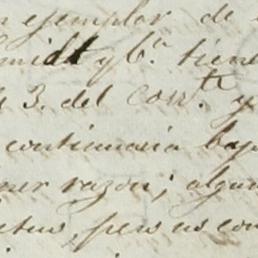 n ejemplar de
midt y Cª. tiene
3. del corrte. y
continuaria bajo
mer razon; algun
pero es con